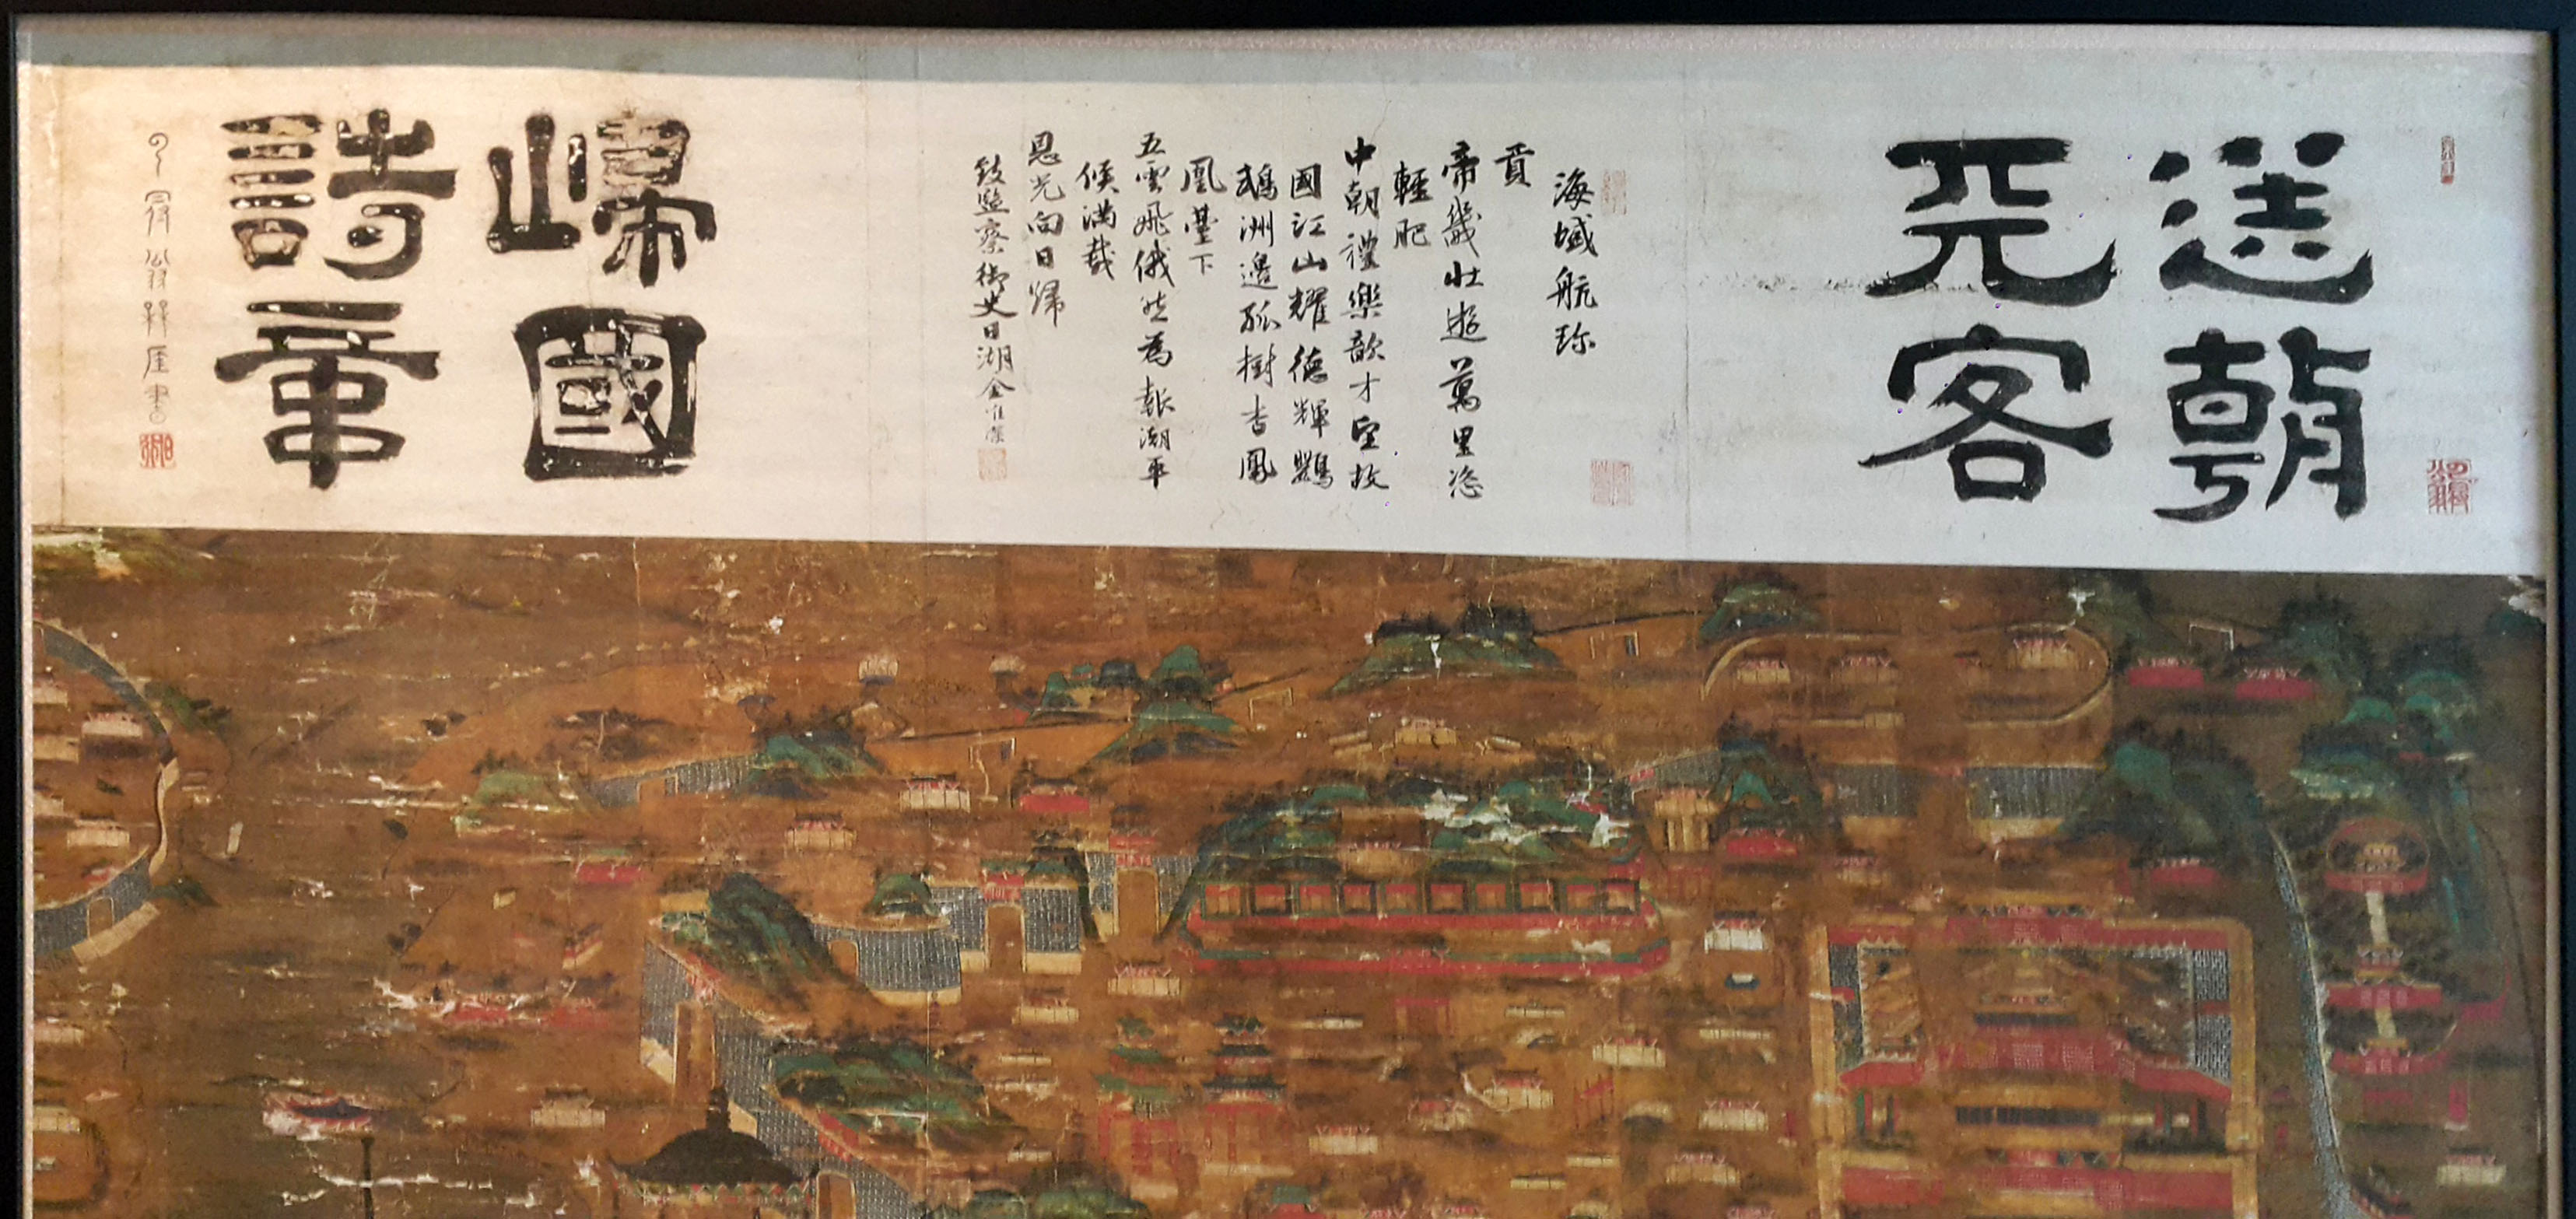 送朝
天客
海域航琛
貢
帝畿壯遊萬里恣
輕肥
中朝禮樂歆才望故
國江山耀德輝鸚
鵡洲邊孤樹杳鳳
凰臺下
五雲飛俄然為報潮平
候滿載
恩光向日歸
致監察御史日湖金唯深
歸國
詩章
翁 崖書